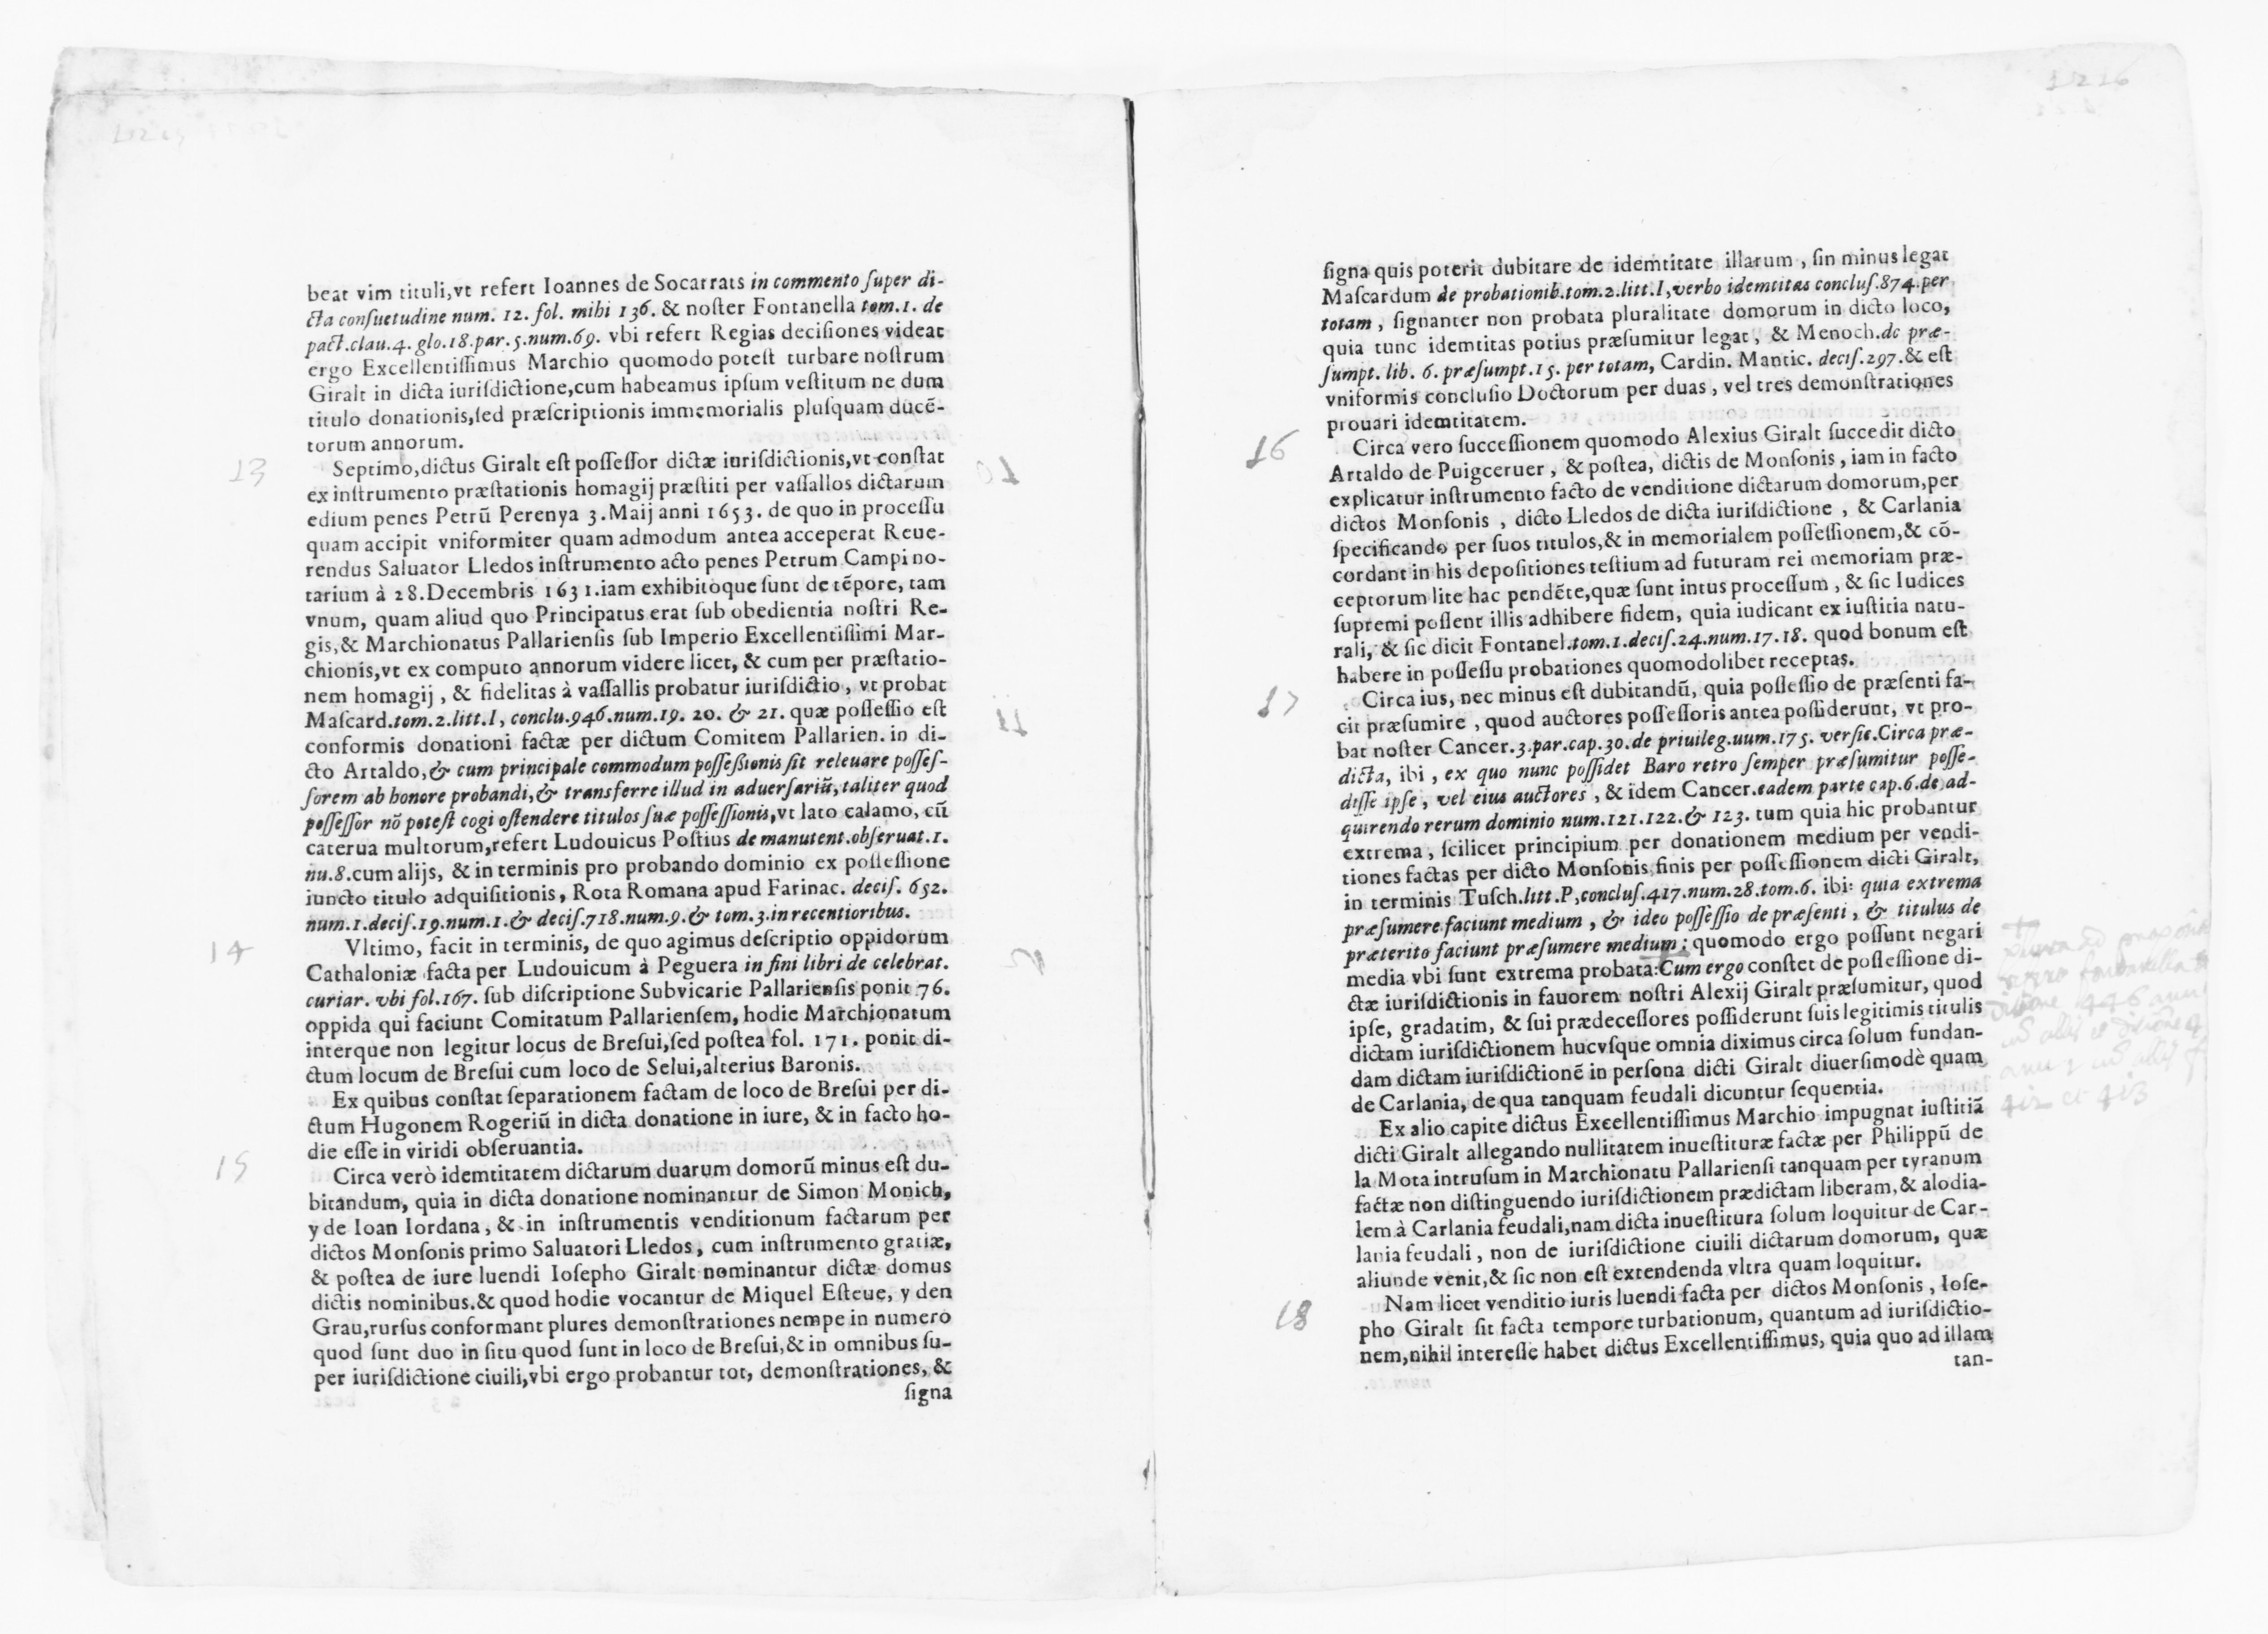 beat vim tituli,vt refert Ioannes de Socarrats in commento ſuper di-
cta conſuetudine num. 12. fol. mihi 136. & noſter Fontanella tom.1. de
pact.clau.4. glo.18.par. 5.num.69. vbi refert Regias deciſiones videat
ergo Excellentiſſimus Marchio quomodo poteſt turbare noſtrum
Giralt in dicta iuriſdictione,cum habeamus ipſum veſtitum ne dum
titulo donationis,ſed præſcriptionis immemorialis pluſquam ducē-
torum annorum.
13
Septimo,dictus Giralt eſt poſſeſſor dictæ iuriſdictionis,vt conſtat
ex inſtrumento præſtationis homagij præſtiti per vaſſallos dictarum
edium penes Petrū Perenya 3.Maij anni 1653. de quo in proceſſu
quam accipit vniformiter quam admodum antea acceperat Reue-
rendus Saluator Lledos inſtrumento acto penes Petrum Campi no-
tarium à 28.Decembris 1631.iam exhibitoque ſunt de tēpore, tam
vnum, quam aliud quo Principatus erat ſub obedientia noſtri Re-
gis,& Marchionatus Pallarienſis ſub Imperio Excellentiſſimi Mar-
chionis,vt ex computo annorum videre licet, & cum per præſtatio-
nem homagij , & fidelitas à vaſſallis probatur iuriſdictio , vt probat
Maſcard.tom.2.litt.I, conclu.946.num.19. 20. & 21. quæ poſſeſſio eſt
conformis donationi factæ per dictum Comitem Pallarien. in di-
cto Artaldo,& cum principale commodum poſſeßionis ſit releuare poſſeſ-
ſorem ab honore probandi,& transferre illud in aduerſariū,taliter quod
poſſeſſor nō poteſt cogi oſtendere titulos ſuæ poſſeſſionis,vt lato calamo, cū
caterua multorum,refert Ludouicus Poſtius de manutent.obſeruat.1.
nu.8.cum alijs, & in terminis pro probando dominio ex poſſeſſione
iuncto titulo adquiſitionis, Rota Romana apud Farinac. deciſ. 652.
num.1.deciſ.19.num.1.& deciſ.718.num.9.& tom.3.in recentioribus.
14
Vltimo, facit in terminis, de quo agimus deſcriptio oppidorum
Cathaloniæ facta per Ludouicum à Peguera in fini libri de celebrat.
curiar. vbi fol.167. ſub diſcriptione Subvicarie Pallarienſis ponit 76.
oppida qui faciunt Comitatum Pallarienſem, hodie Marchionatum
interque non legitur locus de Breſui,ſed poſtea fol. 171. ponit di-
ctum locum de Breſui cum loco de Selui,alterius Baronis.
Ex quibus conſtat ſeparationem factam de loco de Breſui per di-
ctum Hugonem Rogeriū in dicta donatione in iure, & in facto ho-
die eſſe in viridi obſeruantia.
15
Circa verò idemtitatem dictarum duarum domorū minus eſt du-
bitandum, quia in dicta donatione nominantur de Simon Monich,
y de Ioan Iordana , & in inſtrumentis venditionum factarum per
dictos Monſonis primo Saluatori Lledos , cum inſtrumento gratiæ,
& poſtea de iure luendi Ioſepho Giralt nominantur dictæ domus
dictis nominibus.& quod hodie vocantur de Miquel Eſteue, y den
Grau,rurſus conformant plures demonſtrationes nempe in numero
quod ſunt duo in ſitu quod ſunt in loco de Breſui,& in omnibus ſu-
per iuriſdictione ciuili,vbi ergo probantur tot, demonſtrationes, &
ſigna
1216
ſigna quis poterit dubitare de idemtitate illarum , ſin minus legat
Maſcardum de probationib.tom.2.litt.I,verbo idemtitas concluſ.874.per
totam , ſignanter non probata pluralitate domorum in dicto loco,
quia tunc idemtitas potius præſumitur legat , & Menoch.de præ-
ſumpt. lib. 6. præſumpt.15. per totam, Cardin. Mantic. deciſ.297.& eſt
vniformis concluſio Doctorum per duas , vel tres demonſtrationes
prouari idemtitatem.
16
Circa vero ſucceſſionem quomodo Alexius Giralt ſuccedit dicto
Artaldo de Puigceruer , & poſtea, dictis de Monſonis , iam in facto
explicatur inſtrumento facto de venditione dictarum domorum,per
dictos Monſonis , dicto Lledos de dicta iuriſdictione , & Carlania
ſpecificando per ſuos titulos,& in memorialem poſſeſſionem,& cō-
cordant in his depoſitiones teſtium ad futuram rei memoriam præ-
ceptorum lite hac pendēte,quæ ſunt intus proceſſum , & ſic Iudices
ſupremi poſſent illis adhibere fidem, quia iudicant ex iuſtitia natu-
rali, & ſic dicit Fontanel.tom.1.deciſ.24.num.17.18. quod bonum eſt
habere in poſſeſſu probationes quomodolibet receptas.
17
Circa ius, nec minus eſt dubitandū, quia poſſeſſio de præſenti fa-
cit præſumire , quod auctores poſſeſſoris antea poſſiderunt, vt pro-
bat noſter Cancer.3.par.cap.30.de priuileg.uum.175. verſic.Circa præ-
dicta, ibi , ex quo nunc poſſidet Baro retro ſemper præſumitur poſſe-
diſſe ipſe , vel eius auctores , & idem Cancer.eadem parte cap.6.de ad-
quirendo rerum dominio num.121.122.& 123. tum quia hic probantur
extrema , ſcilicet principium per donationem medium per vendi-
tiones factas per dicto Monſonis,finis per poſſeſſionem dicti Giralt,
in terminis Tuſch.litt.P,concluſ.417.num.28.tom.6. ibi: quia extrema
præſumere faciunt medium , & ideo poſſeſſio de præſenti , & titulus de
præterito faciunt præſumere medium ; quomodo ergo poſſunt negari
media vbi ſunt extrema probata:Cum ergo conſtet de poſſeſſione di-
ctæ iuriſdictionis in fauorem noſtri Alexij Giralt præſumitur, quod
ipſe, gradatim, & ſui prædeceſſores poſſiderunt ſuis legitimis titulis
dictam iuriſdictionem hucvſque omnia diximus circa ſolum fundan-
dam dictam iuriſdictionē in perſona dicti Giralt diuerſimodè quam
de Carlania, de qua tanquam feudali dicuntur ſequentia.
412 et 413
Ex alio capite dictus Excellentiſſimus Marchio impugnat iuſtitiā
dicti Giralt allegando nullitatem inueſtituræ factæ per Philippū de
la Mota intruſum in Marchionatu Pallarienſi tanquam per tyranum
factæ non diſtinguendo iuriſdictionem prædictam liberam,& alodia-
lem à Carlania feudali,nam dicta inueſtitura ſolum loquitur de Car-
lania feudali , non de iuriſdictione ciuili dictarum domorum, quæ
aliunde venit,& ſic non eſt extendenda vltra quam loquitur.
18
Nam licet venditio iuris luendi facta per dictos Monſonis , Ioſe-
pho Giralt ſit facta tempore turbationum, quantum ad iuriſdictio-
nem,nihil intereſſe habet dictus Excellentiſſimus, quia quo ad illam
tan-